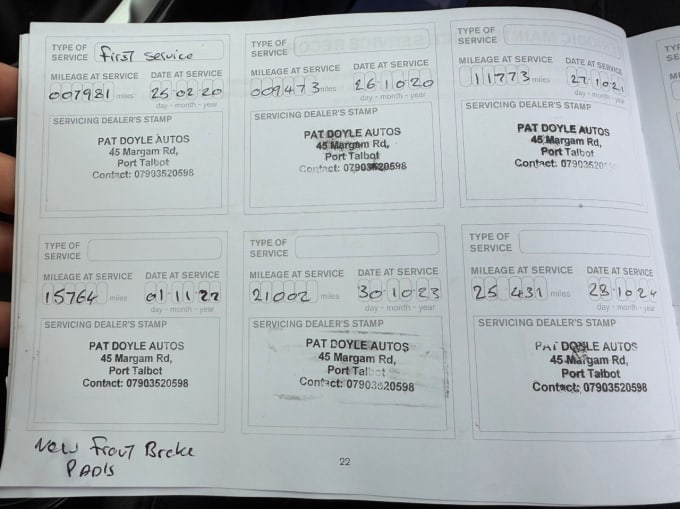 TYPE OF SERVICE First Service
MILEAGE AT SERVICE DATE AT SERVICE
007981 miles 25 02 20
day - month - year
SERVICING DEALER'S STAMP
PAT DOYLE AUTOS
45 Margam Rd,
Port Talbot
Contact: 07903520598
TYPE OF SERVICE
MILEAGE AT SERVICE DATE AT SERVICE
009473 miles 26 10 20
day - month - year
SERVICING DEALER'S STAMP
PAT DOYLE AUTOS
45 Margam Rd,
Port Talbot
Contact: 07903520598
TYPE OF SERVICE
MILEAGE AT SERVICE DATE AT SERVICE
11773 miles 27 10 21
day - month - year
SERVICING DEALER'S STAMP
PAT DOYLE AUTOS
45 Margam Rd,
Port Talbot
Contact:
TYPE OF SERVICE
MILEAGE AT SERVICE DATE AT SERVICE
15764 miles 01 11 22
day - month - year
SERVICING DEALER'S STAMP
PAT DOYLE AUTOS
45 Margam Rd,
Port Talbot
Contact: 07903520598
TYPE OF SERVICE
MILEAGE AT SERVICE DATE AT SERVICE
21002 miles 30 10 23
day - month - year
SERVICING DEALER'S STAMP
PAT DOYLE AUTOS
45 Margam Rd,
Port Talbot
Contact: 07903520598
TYPE OF SERVICE
MILEAGE AT SERVICE DATE AT SERVICE
25431 miles 28 10 24
day - month - year
SERVICING DEALER'S STAMP
PAT DOYLE AUTOS
45 Margam Rd,
Port Talbot
Contact: 07903520598
New Front Brake
PADS
22